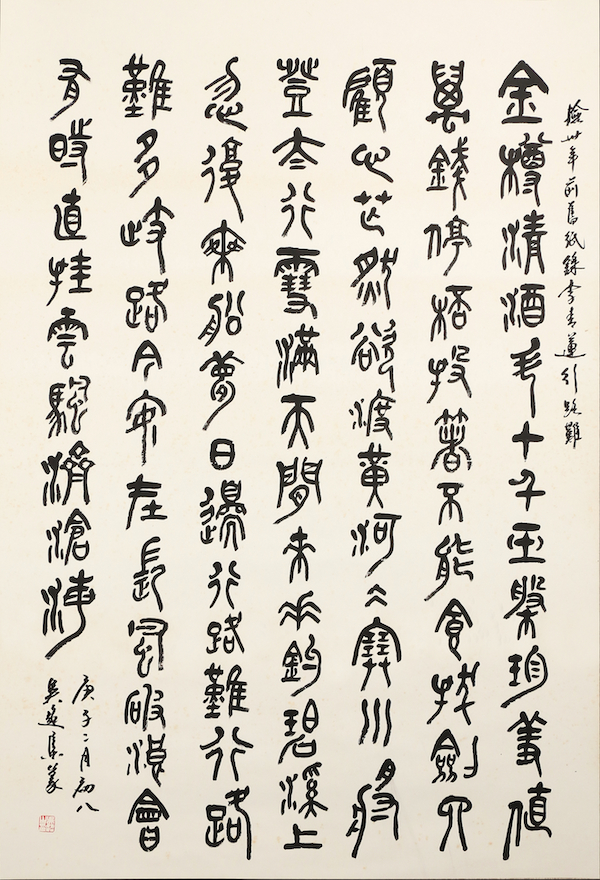 撿卅年前舊紙錄李青蓮行路難
金樽清酒斗十千玉槃珍羞值
萬錢停桮投箸不能食拔劍四
顧心芒然欲渡黃河冰塞川將
登太行雪滿天閒來垂釣碧溪上
忽復乘船夢日邊行路難行路
難多歧路今安在長風破浪會
有時直挂雲帆濟滄海
庚子二月初八
吳集篆